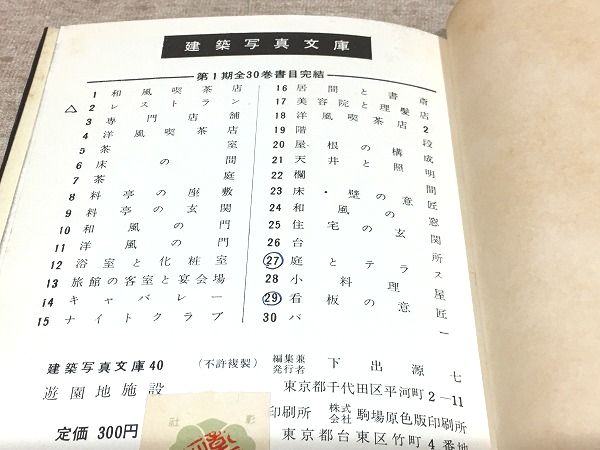 建築写真文庫
第1期全30巻書目完結
1 和風喫茶店
2 レストラン
3 専門店舗
4 洋風喫茶店
5 茶室
6 床の間
7 茶庭
8 料亭の座敷
9 料亭の玄関
10 和風の門
11 洋風の門
12 浴室と化粧室
13 旅館の客室と宴会場
14 キャバレー
15 ナイトクラブ
16 居間と書斎
17 美容院と理髪店
18 洋風喫茶店2
19 階段
20 屋根の構成
21 天井と照明
22 欄間
23 床・壁の意匠
24 和風の窓
25 住宅の玄関
26 台所
27 庭とテラス
28 小料理屋
29 看板の意匠
30 バー
建築写真文庫40 (不許複製)
遊園地施設
定価 300円
編集兼発行者 下出源七
東京都千代田区平河町2-11
印刷所 株式会社 駒場原色版印刷所
東京都台東区竹町4番地